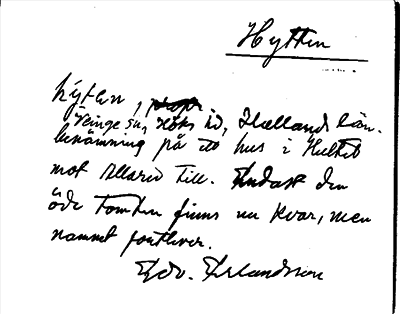 Hytten
hýten,
Veinge sn, Höks hd, Hallands län.
benämning på ett hus i Hultet
mot Allared till. Endast den
öde tomten finns nu kvar, men
namnet fortlever.
Edv. Erlandsson